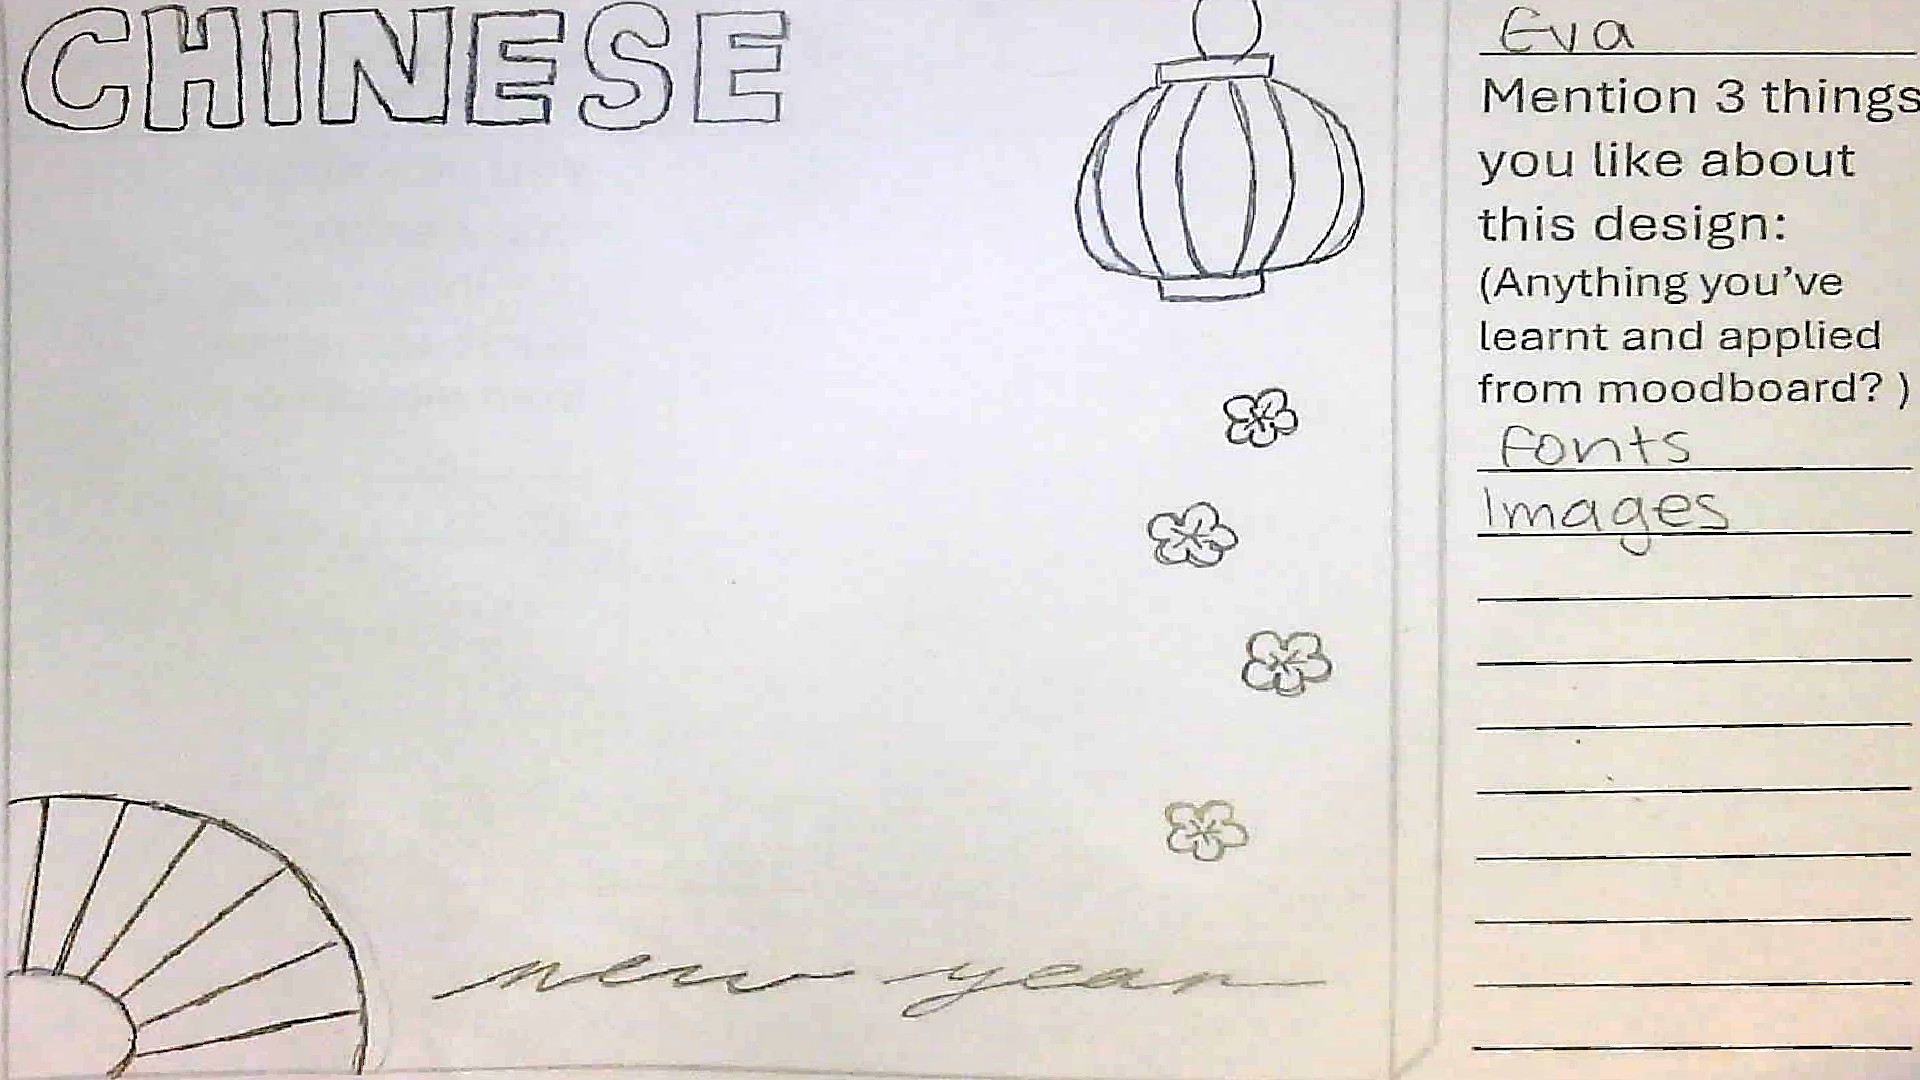 CHINESE
new year
Eva
Mention 3 things
you like about
this design:
(Anything you've
learnt and applied
from moodboard? )
Fonts
Images